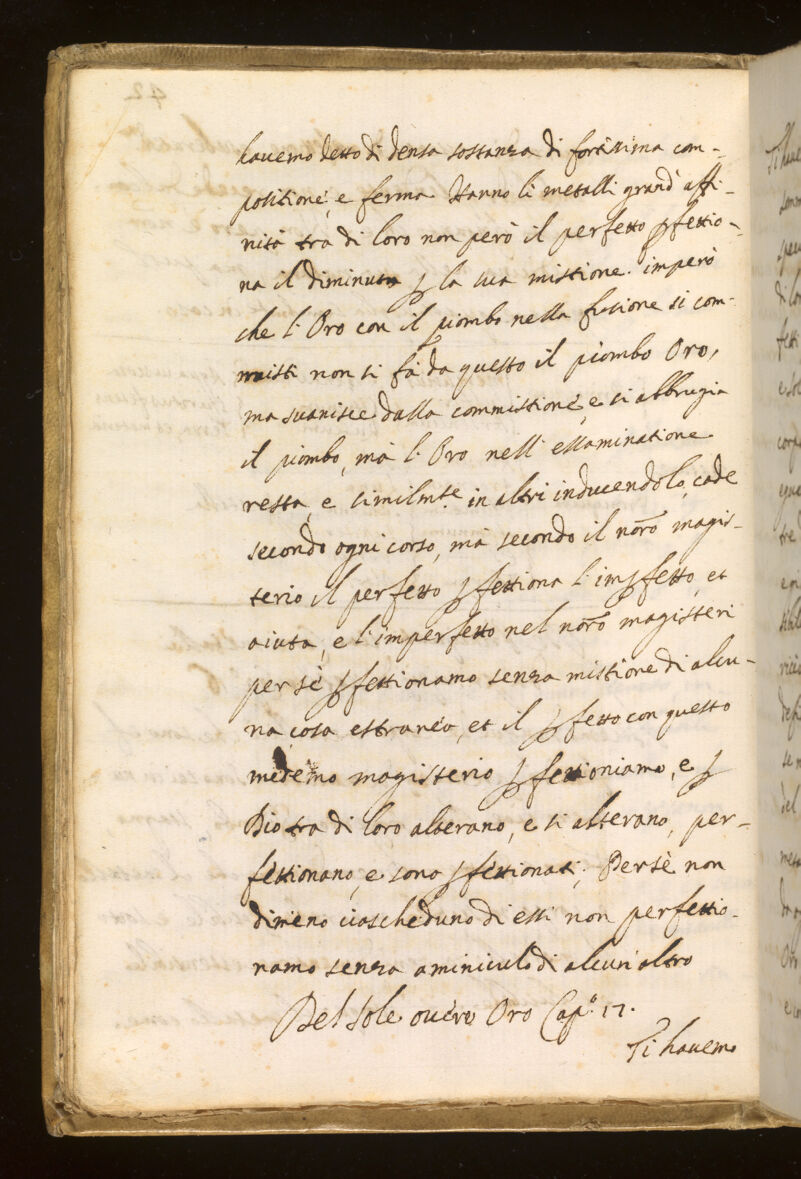 havemo detto di densa sostanza di fortissima com-
positione, e ferma. Hanno li metalli grand' affi-
nità tra di loro non però il perfetto pfettio-
na il diminuto p la sua mistione. imperò
che l'Oro con il piombo nella fusione si com-
misti non si fà da questo il piombo Oro,
ma svanisce dalla commistione, e si abbrugia
il piombo, mà l'Oro nell'essaminatione
resta, e similmte. in altri inducendolo, cade
secondo ogni corso, mà secondo il nõro magis-
terio il perfetto pfettiona l'impfetto, et
aiuta, e l'imperfetto nel nõro magisteri
per sè pfettionamo senza mistione di alcu-
na cosa estranea, et il pfetto con questo
medemo magisterio pfettioniamo, e p
Dio tra di loro alterano, e si alterano, per-
fettionano, e sono pfettionati; Persè non
dimeno ciascheduno di essi non perfettio-
namo senza aminiculo di alcun altro
Del sole overo Oro Cap.º 17.
Ti havemo
42